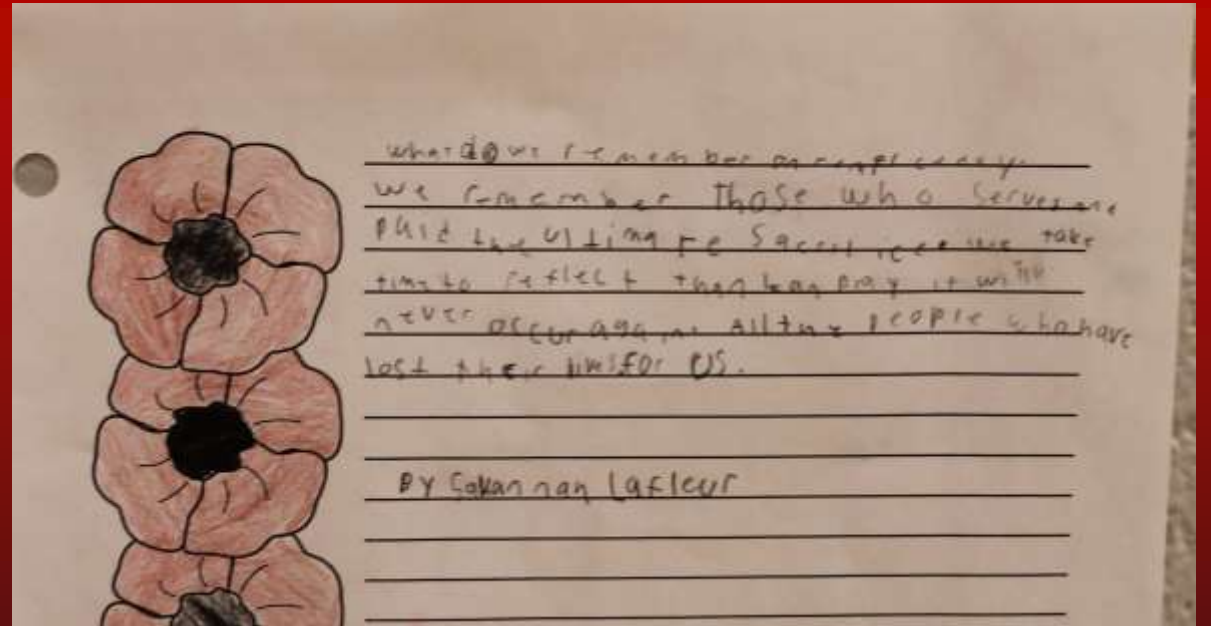 what do we remember on
we remember those who serves and
paid the ultimate take
time to reflect than pray it will
never occur again. All the people who have
lost their for us.
By Savannah Lafleur